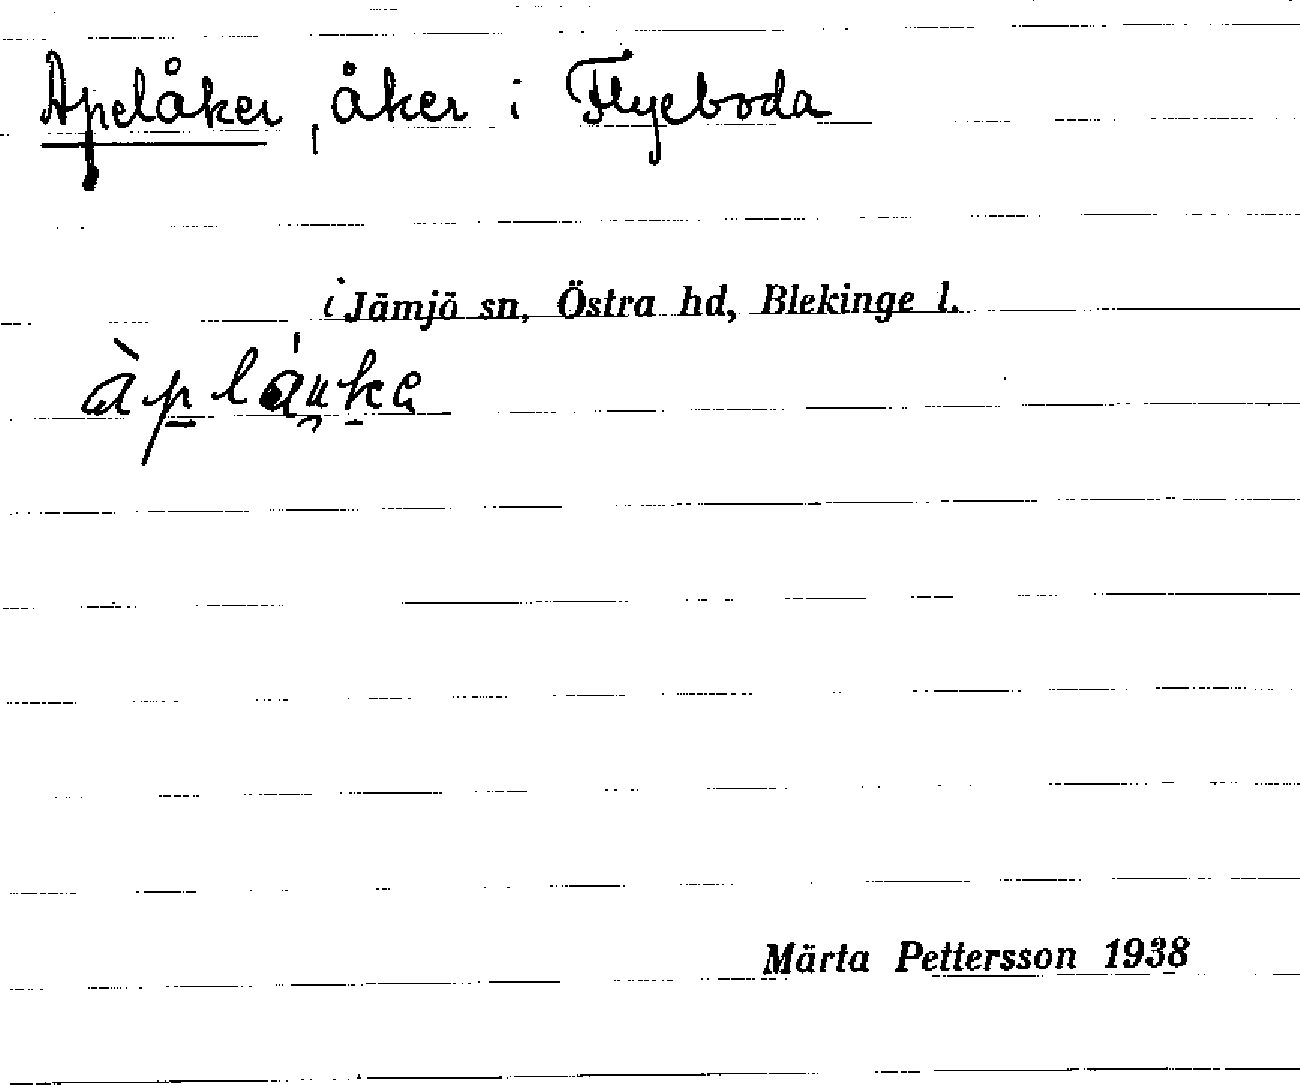 Apelåker, åker i Flyeboda
i Jämjö sn, Östra hd, Blekinge l.
àpláu̯ka
Märta Pettersson 1938